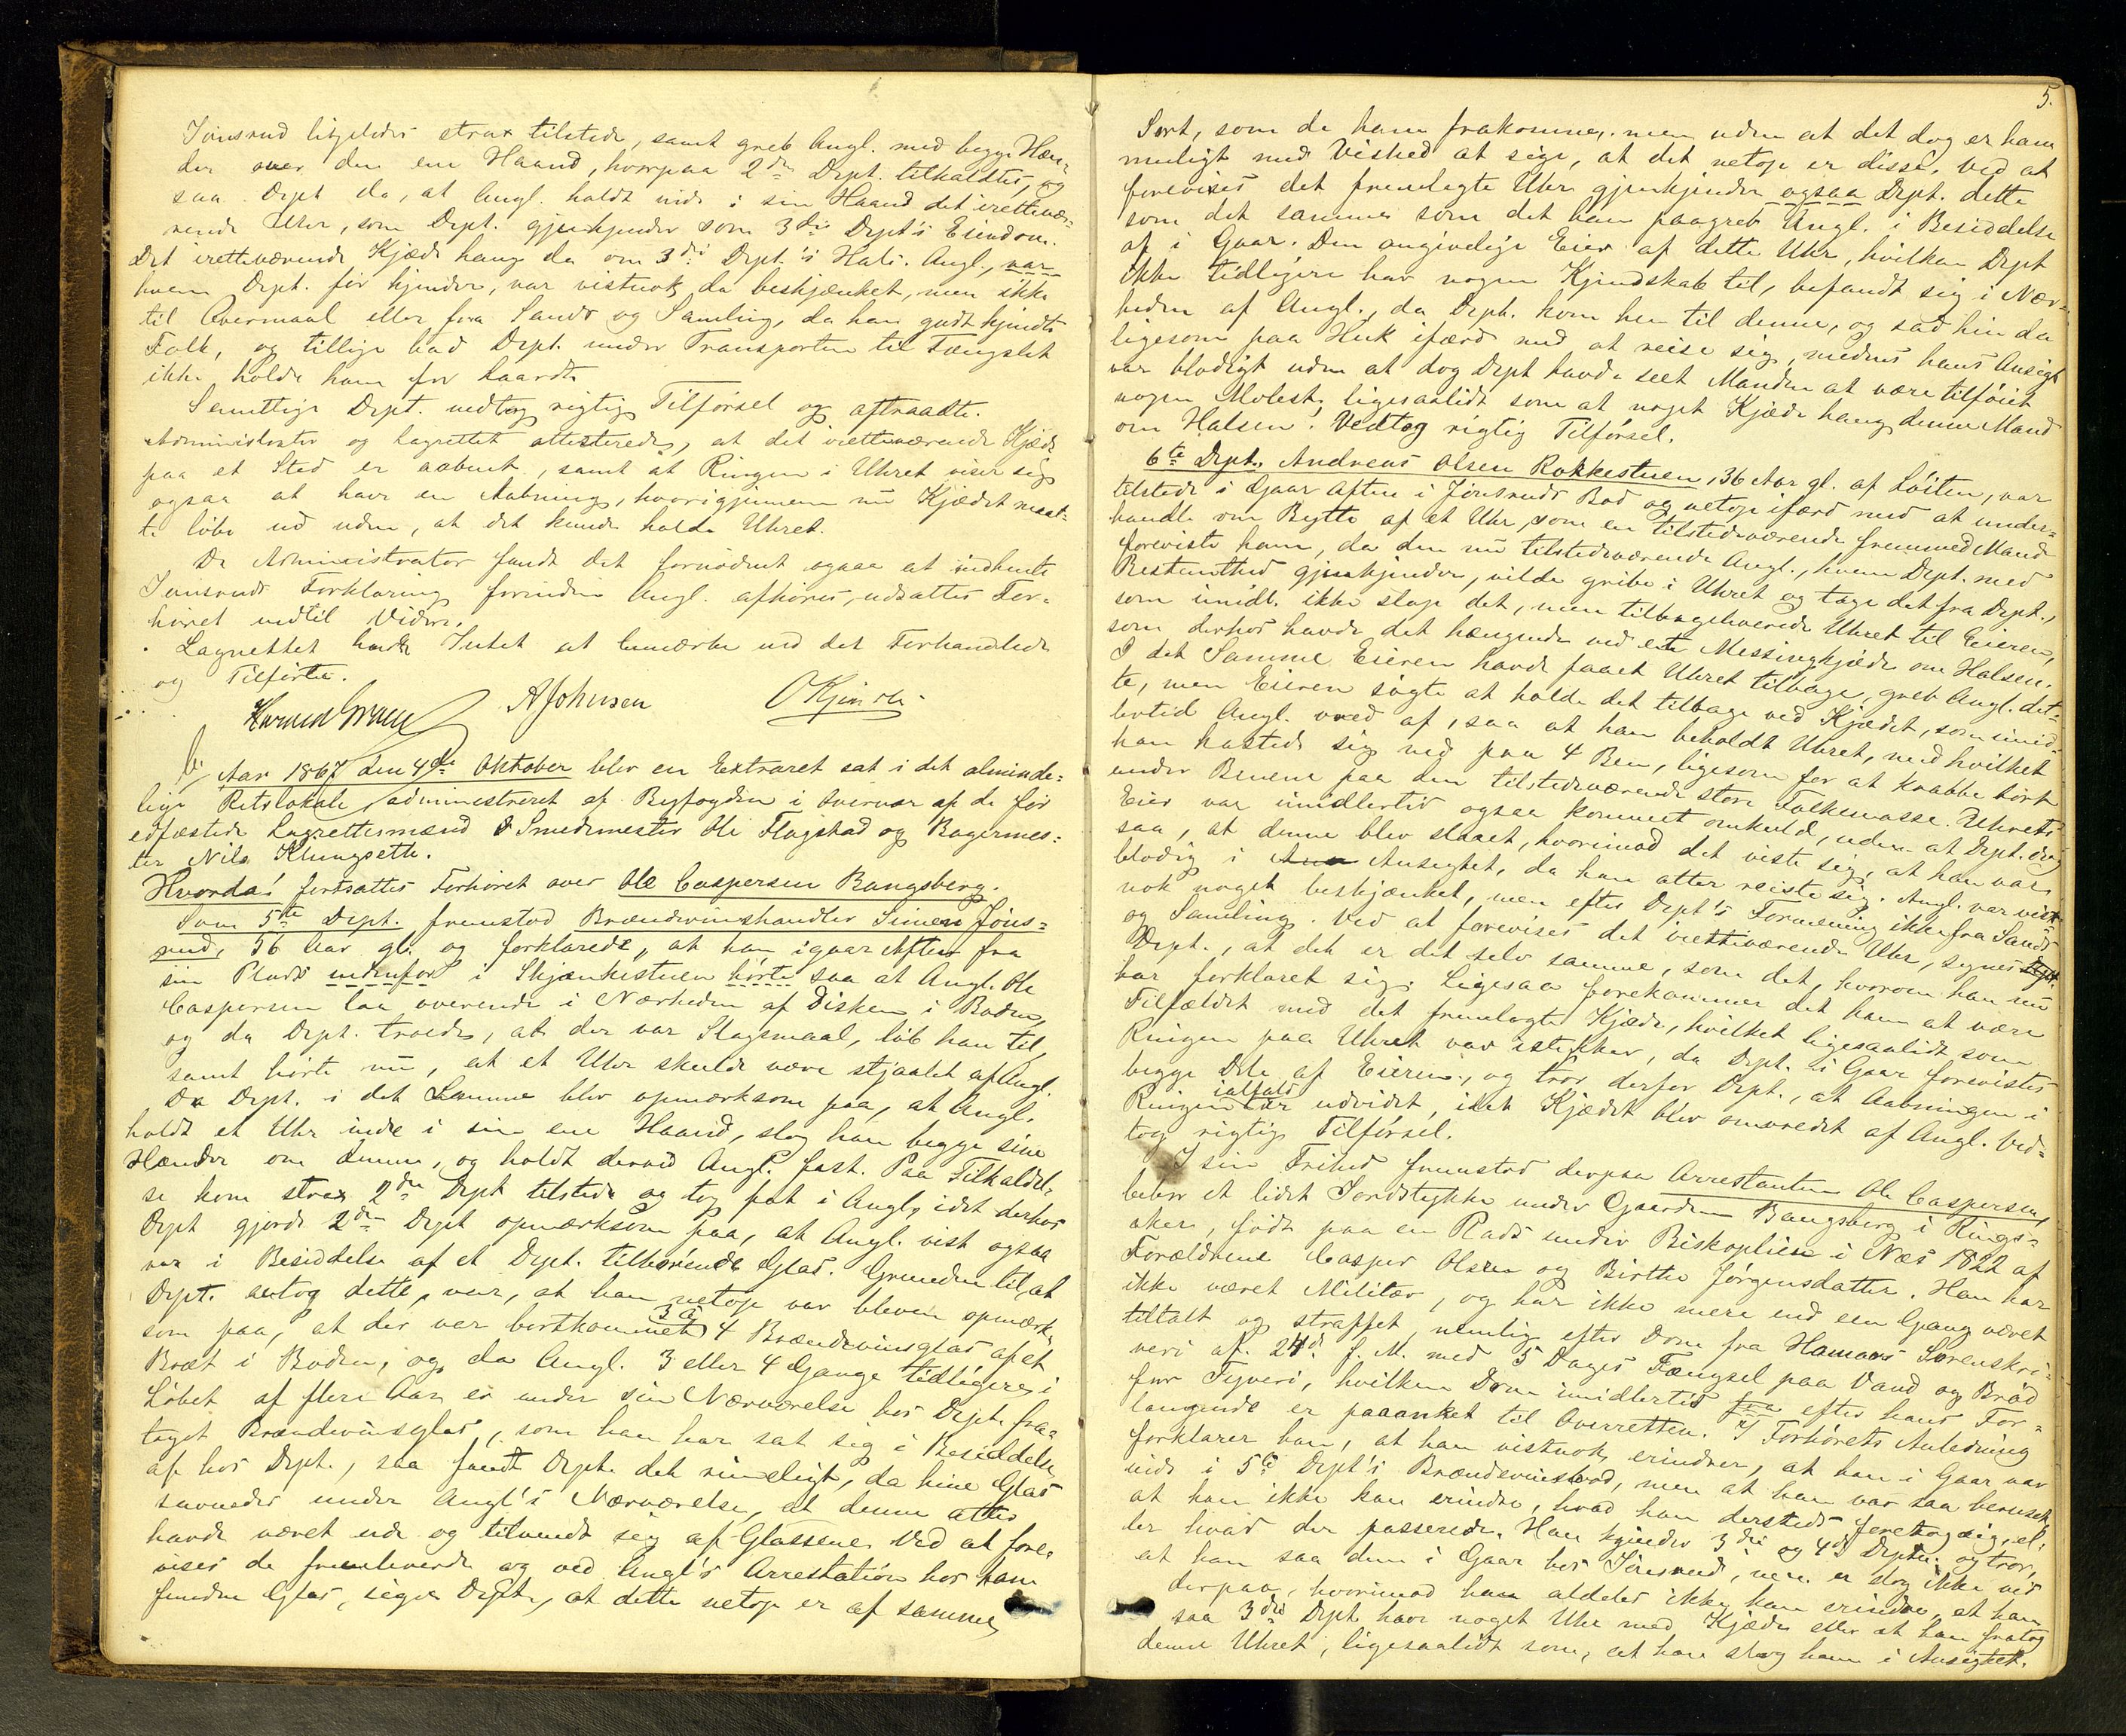 Jønsrud ligeledes strax tilstede, samt greb Angl. med begge Hæn-
der over den ene Haand, hvorpaa 2den Dept. tilkaldtes, og
saa Dept da, at Angl. holdt inde i sin Haand det irettevæ-
rende Uhr, som Dept. gjenkjender som 3die Dept's Eiendom.
Det iretteværende Kjæde hang da om 3die Dept.'s Hals. Angl., var
hvem Dept. før kjender, var vistnok da beskjænket, men ikke
til Overmaal eller fra Sands og Samling, da han godt kjendte
Folk, og tillige bad Dept. under Transporten til Fængslet
ikke holde ham for haardt.
Samtlige Dept. vedtog rigtig Tilførsel og aftraadte.
Administrator og Lagrettet attesterede, at det iretteværende Kjæde
paa et Sted er aabent, samt at Ringen i Uhret viser sig
ogsaa at have en Aabning, hvorigjennem nu Kjædet maat-
te løbe ud uden, at det kunde holde Uhret.
Da Administrator fandt det fornødent ogsaa at indhente
Jønsruds Forklaring forinden Angl. afhøres, udsattes For-
høret indtil Videre.
Lagrettet havde Intet at bemærke ved det Forhandlede
og Tilførte.
AJohnsen
Aar 1867 den 4de Oktober blev en Extraret sat i det alminde-
lige Retslokale administreret af Byfogden i Overvær af de før
edfæstede Lagrettesmænd Smedmester Ole Flagstad og Bagermes-
ter Nils Klungseth.
Hvorda: fortsattes Forhøret over Ole Caspersen Bangsberg.
Som 5te Dept. fremstod Brændevinshandler Simen Jøns-
rud, 56 Aar gl. og forklarede, at han igaar Aften fra
sin Plads indenfor i Skjænkestuen hørte saa at Angl. Ole
Caspersen laa overende i Nærheden af Disken i Boden,
og da Dept. troede, at der var Slagsmaal, løb han til,
samt hørte nu, at et Uhr skulde være stjaalet af Angl.
Da Dept. i det Samme blev opmærksom paa, at Angl.
holdt et Uhr inde i sin ene Haand, slog han begge sine
Hænder om denne, og holdt derved Angl. fast. Paa Tilkaldel-
se kom strax 2den Dept tilstede og tog fat i Angl, idet derhos
Dept gjorde 2den Dept opmærksom paa, at Angl. vist ogsaa
var i Besiddelse af et Dept. tilhørende Glas. Grunden til, at
Dept. antog dette, var, at han netop var bleven opmærk-
som paa, at der var bortkommet 3 à 4 Brændevinsglas af et
Bræt i Boden, og da Angl. 3 eller 4 Gange tidligere i
Løbet af flere Aar er under sin Nærværelse hos Dept. fra-
taget Brændevinsglas, som han har sat sig i Besiddelse
af hos Dept., saa fandt Dept. det rimeligt, da hine Glas
savnedes under Angl's Nærværelse, at denne atter
havde været ude og tilvendt sig af Glassene. Ved at fore-
vises de fremleverede og ved Angl's Arrestation hos ham
fundne Glas, siger Dept., at dette netop er af samme
5.
Sort, som de ham frakomne, men uden at det dog er ham
muligt med Vished at sige, at det netop er disse. Ved at
forevises det fremlagte Uhr gjenkjender ogsaa Dept. dette
som det samme som det han paagreb Angl. i Besiddelse
af i Gaar. Den angivelige Eier af dette Uhr, hvilken Dept
ikke tidligere har nogen Kjendskab til, befandt sig i Nær-
heden af Angl., da Dept. kom hen til denne, og sad hin da
ligesom paa Huk ifærd med at reise sig, medens hans Ansigt
var blodigt uden at dog Dept havde seet Manden at være tilføiet
nogen Molest, ligesaalidt som at noget Kjæde hang denne Mand
om Halsen. Vedtog rigtig Tilførsel.
6te Dept. Andreas Olsen Rokkestuen, 36 Aar gl. af Løiten, var
tilstede i Gaar Aften i Jønsruds Bod og netop ifærd med at under-
handle om Bytte af et Uhr, som en tilstedeværende fremmed Mand
foreviste ham, da den nu tilstedeværende Angl., hvem Dept. med
Bestemthed gjenkjender, vilde gribe i Uhret og tage det fra Dept.,
som imidl. ikke slap det, men tilbageleverede Uhret til Eieren,
som derhos havde det hængende ved et Messingkjæde om Halsen.
I det Samme Eieren havde faaet Uhret tilbage, greb Angl. det-
te, men Eieren søgte at holde det tilbage ved Kjædet, som imid-
lertid Angl. vred af, saa at han beholdt Uhret, med hvilket
han kastede sig ned paa 4 Ben, ligesom for at krabbe bort
under Benene paa den tilstedeværende store Folkemasse. Uhrets
Eier var imidlertid ogsaa kommet omkuld, uden at Dept. dog
saa, at denne blev slaaet, hvorimod det viste sig, at han var
blodig i Ansigtet, da han atter reiste sig. Angl. var vist-
nok noget beskjænket, men efter Dept's Formening ikke fra Sands
og Samling. Ved at forevises det iretteværende Uhr, synes
Dept., at det er det selv samme, som det, hvorom han nu
har forklaret sig. Ligesaa forekommer det ham at være
Tilfældet med det fremlagte Kjæde, hvilket ligesaalidt som
Ringen paa Uhret var istykker, da Dept. i Gaar forevistes
begge Dele af Eieren, og tror derfor Dept., at Aabningen i
Ringen ialfald er udvidet, idet Kjædet blev omvredet af Angl. Ved-
tog rigtig Tilførsel.
I sin Frihed fremstod derpaa Arrestanten Ole Caspersen,
beboer et lidet Jordstykke under Gaarden Bangsberg i Rings-
aker, født paa en Plads under Biskoplien i Næs 1822 af
Forældrene Casper Olsen og Birthe Jørgensdatter. Han har
ikke været Militær, og har ikke mere end een Gang været
tiltalt og straffet, nemlig efter Dom fra Hamars Sorenskri-
veri af 24d. f. M. med 5 Dages Fængsel paa Vand og Brød
for Tyveri, hvilken Dom imidlertid efter hans For-
langende er paaanket til Overretten. I Forhørets Anledning
forklarer han, at han vistnok erindrer, at han i Gaar var
inde i 5te Dept's Brændevinsbod, men at han var saa beruset,
at han ikke kan erindre, hvad han dersteds foretog sig, el-
ler hvad der passerede. Han kjender 3die og 4de Depter. og tror,
at han saa dem i Gaar hos Jønsrud, men er dog ikke vis
derpaa, hvorimod han aldeles ikke kan erindre, at han
saa 3die Dept. have noget Uhr med Kjæde eller at han fratog
denne Uhret, ligesaalidt som, at han slog ham i Ansigtet.